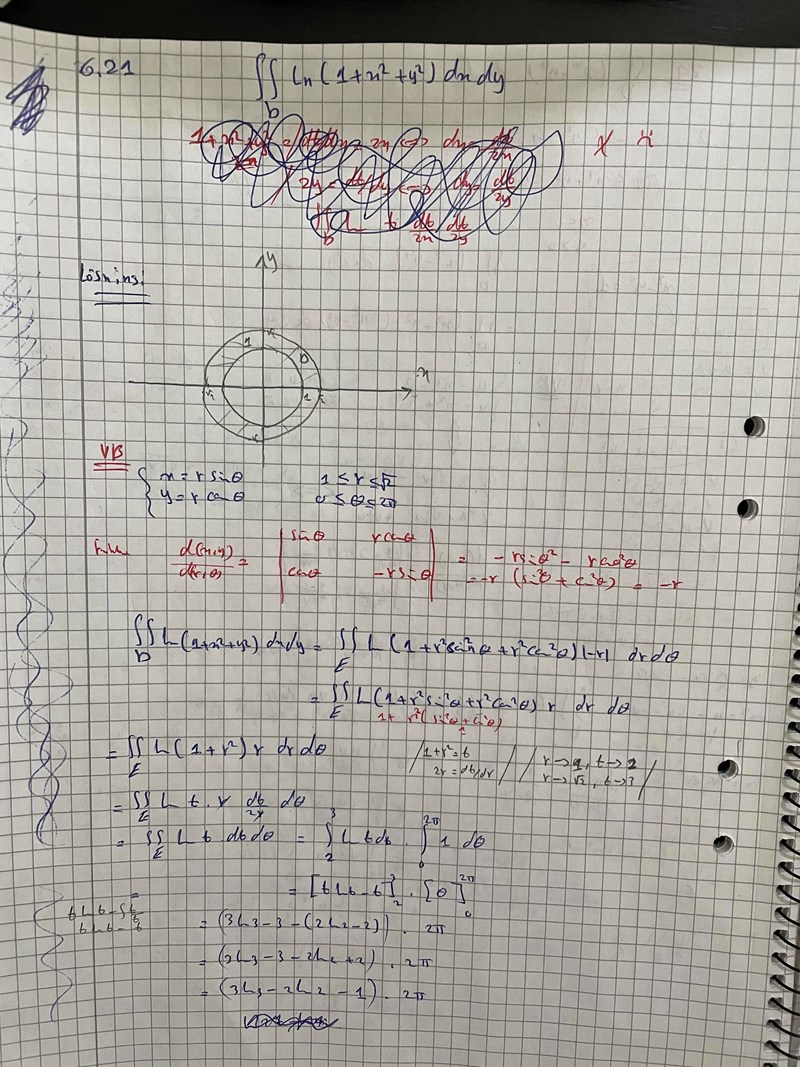 6.21
∬_D ln(1+x²+y²) dxdy
Lösning:
y
x
1 D
√2 1 √2
VB
{ x = r sinθ 1 ≤ r ≤ √2
{ y = r cosθ 0 ≤ θ ≤ 2π
d(x,y)/d(r,θ) = | sinθ rcosθ | = -rsinθ² - rcos²θ
| cosθ -rsinθ | = -r (sin²θ + cos²θ) = -r
∬_D ln(1+x²+y²) dxdy = ∬_E ln(1+r²sin²θ+r²cos²θ)|-r| dr dθ
= ∬_E ln(1+r²sin²θ+r²cos²θ) r dr dθ
1+ r²(sin²θ+cos²θ)
1
= ∬_E ln(1+r²) r dr dθ /1+r²=t 2r=dt/dr/ /r→1, t→2 r→√2, t→3/
= ∬_E ln t · r dt/2r dθ
= ∬_E ln t dt dθ = ∫₂³ ln t dt · ∫₀^2π 1 dθ
= [t ln t - t]₂³ · [θ]₀^2π
t ln t - ∫ t/t
t ln t - t
= (3ln3-3-(2ln2-2)) · 2π
= (3ln3-3-2ln2+2) · 2π
= (3ln3-2ln2-1) · 2π